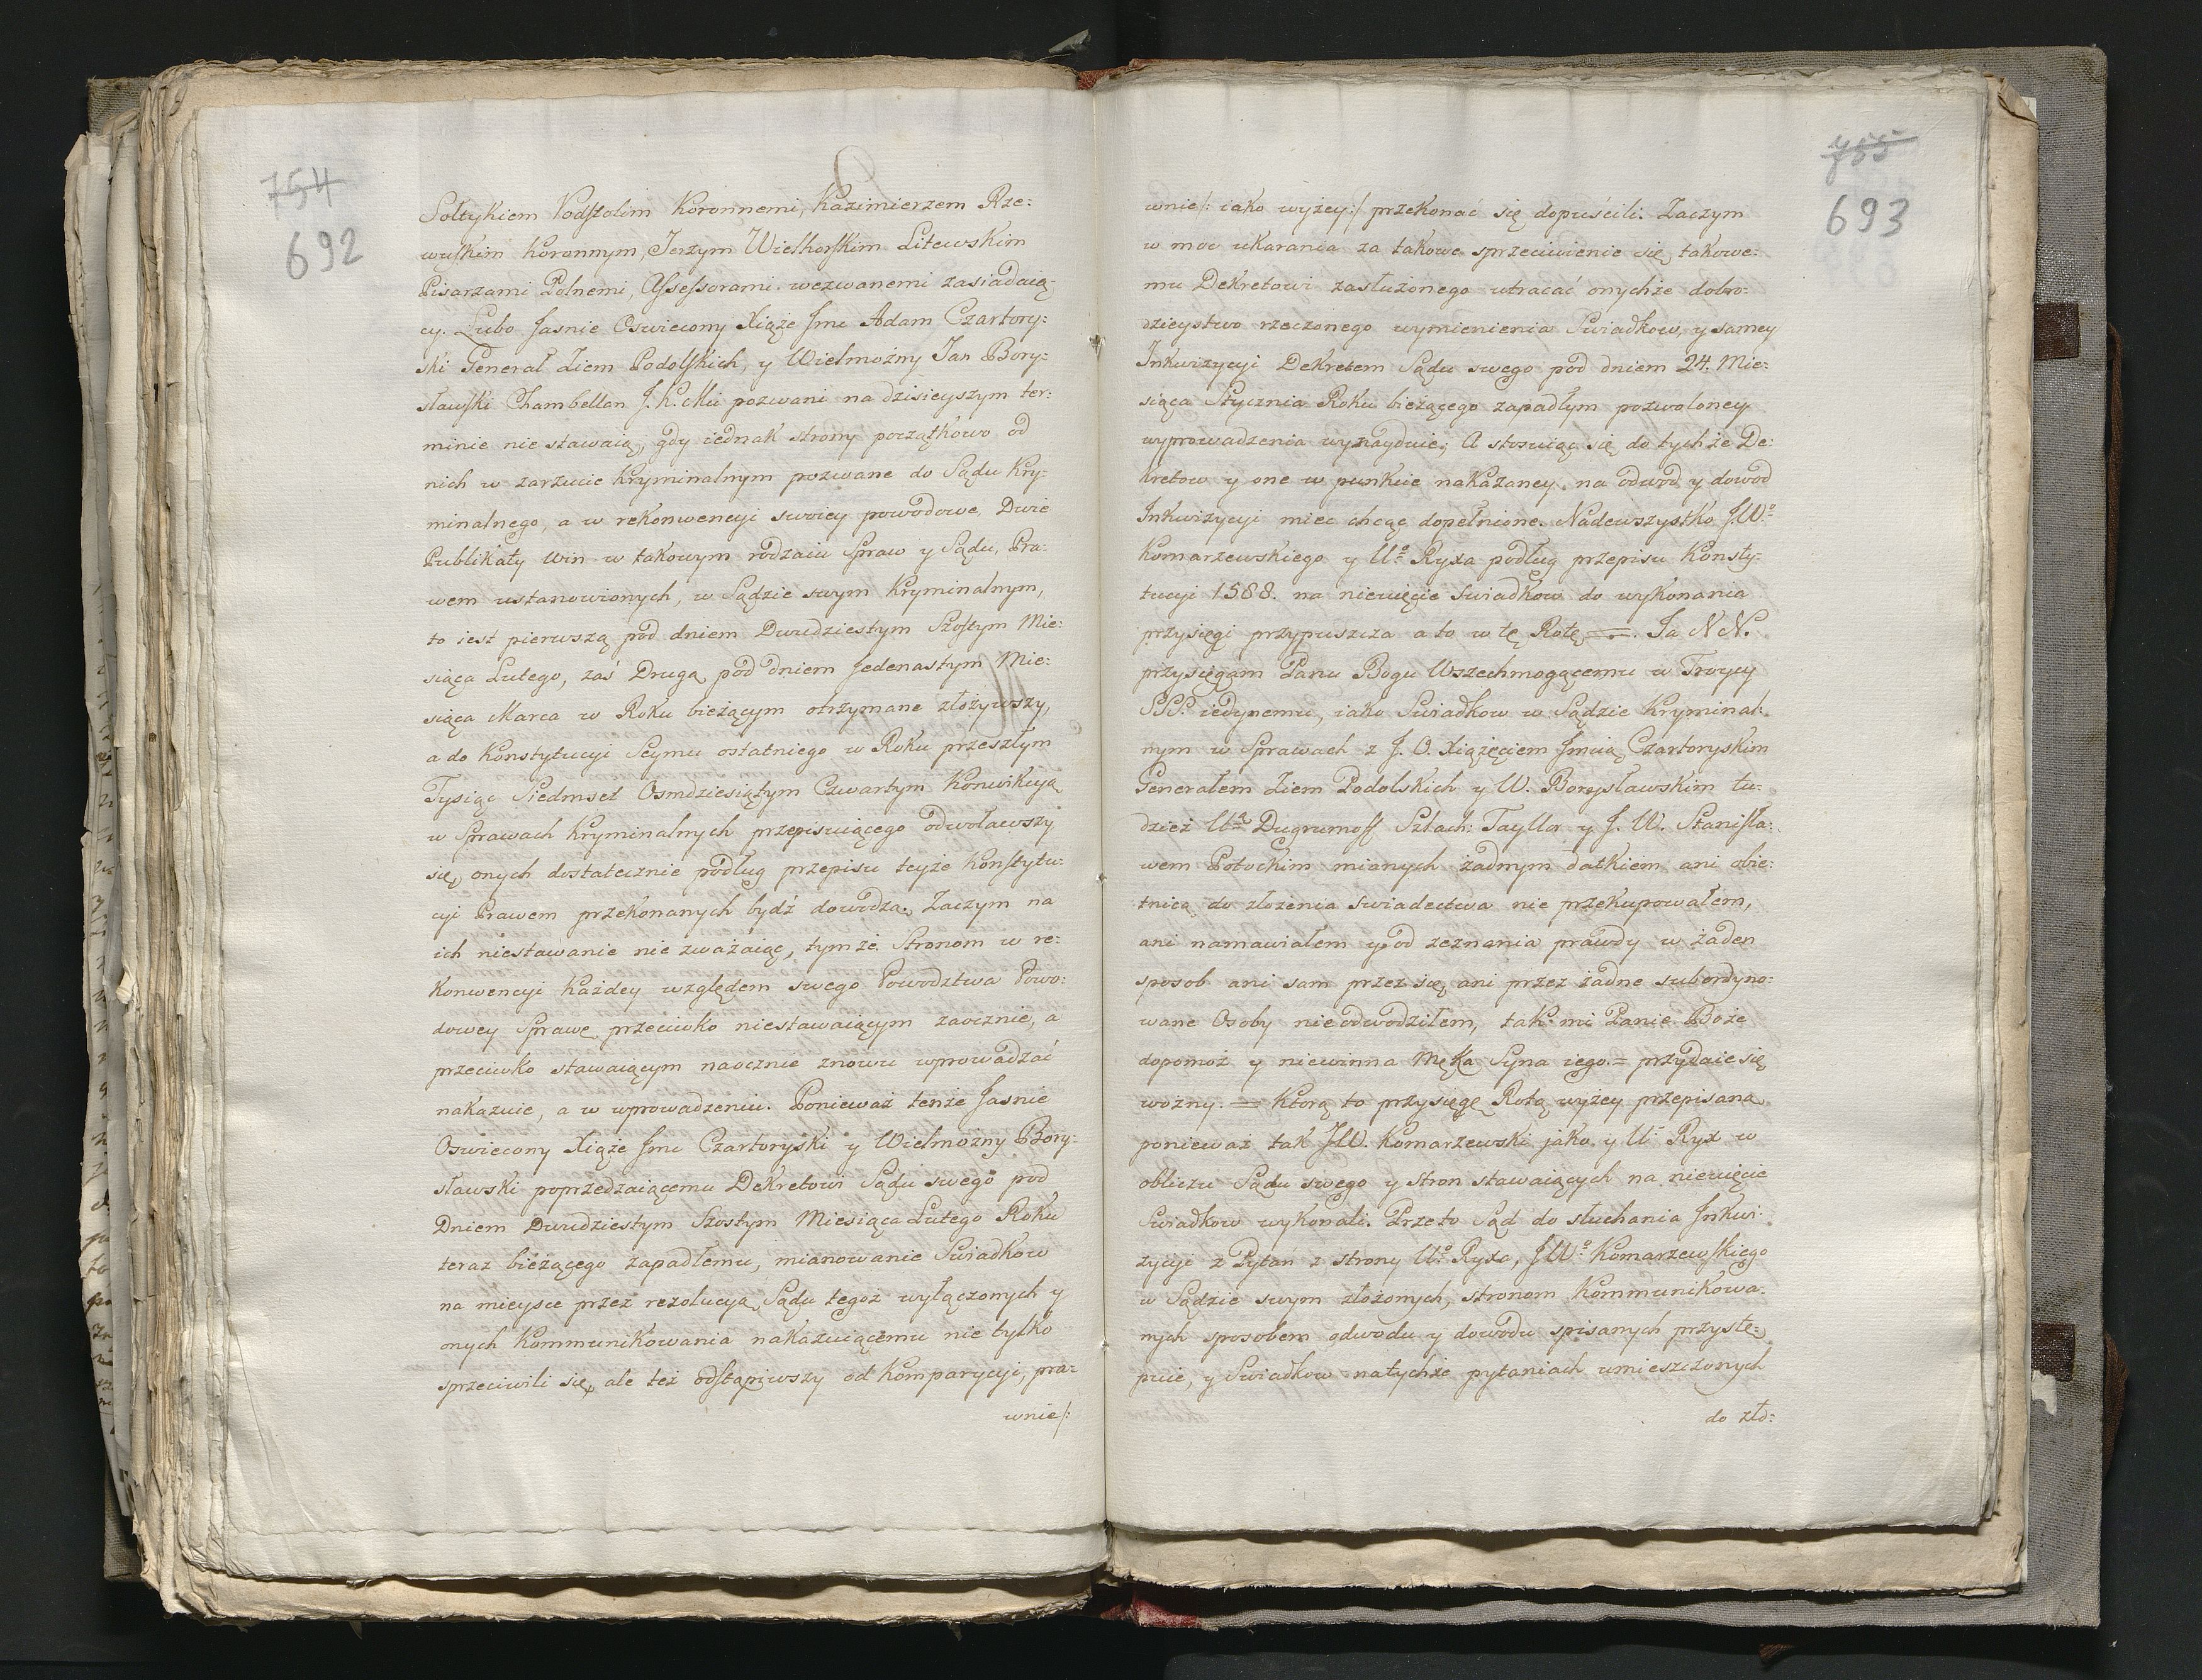 754
692
Sołtykiem Podstolim Koronnemi, Kazimierzem Rze:
wuskim Koronnym, Jerzym Wielhorskim Litewskim
Pisarzami Polnemi, Assessorami wezwanemi zasiadaią-
cy. Lubo Jasnie Oswiecony Xiąże Jmc Adam Czartory:
ski Generał Ziem Podolskich, y Wielmożny Jan Bory:
sławski Chambellan J. K. Mci pozwani na dzisieyszym ter:
minie nie stawaią, gdy iednak strony początkowo od
nich w zarzucie Kryminalnym pozwane do Sądu Kry:
minalnego, a w rekonwencyi swoiey powodowe, Dwie
Publikaty Win w takowym rodzaiu Spraw y Sądu, Pra:
wem ustanowionych, w Sądzie swym Kryminalnym,
to iest pierwszą pod dniem Dwudziestym Szostym Mie:
siąca Lutego, zaś Drugą pod dniem Jedenastym Mie:
siąca Marca w Roku bieżącym otrzymane złożywszy,
a do Konstytucyi Seymu ostatniego w Roku przeszłym
Tysiąc Siedmset Osmdziesiątym Czwartym Konwikcyą
w Sprawach Kryminalnych przepisuiącego odwoławszy
się, onych dostatecznie podług przepisu teyże Konstytu:
cyi Prawem przekonanych bydź dowodzą. Zaczym na
ich niestawanie nie zważaiąc, tymże Stronom w re:
Konwencyi Każdey względem swego Powodztwa Powo:
dowey Sprawę przeciwko niestawaiącym zaocznie, a
przeciwko stawaiącym naocznie znowu wprowadzać
nakazuie, a w wprowadzeniu. Ponieważ tenże Jasnie
Oswiecony Xiąże Jmc Czartoryski y Wielmożny Bory:
sławski poprzedzaiącemu Dekretowi Sądu swego pod
Dniem Dwudziestym Szostym Miesiąca Lutego Roku
teraz bieżącego zapadłemu, mianowanie Swiadkow
na mieysce przez rezolucyą Sądu tegoż wyłączonych y
onych Kommunikowania nakazuiącemu nie tylko
sprzeciwili się, ale też odstąpiwszy od Komparycyi, pra-
wnie/:
755
693
wnie/: iako wyżey:/ przekonać się dopuścili. Zaczym
w moc ukarania za takowe sprzeciwienie się, takowe:
mu Dekretowi zasłużonego utracać onychże dobro:
dzieystwo rzeczonego wymienienia Swiadkow, y samey
Inkwizycyi Dekretem Sądu swego pod dniem 24. Mie:
siąca Stycznia Roku bieżącego zapadłym pozwoloney
wyprowadzenia wynayduie; A stosuiąc się do tychże De:
Kretow y one w punkcie nakazaney na odwod y dowod
Inkwizycyi miec chcąc dopełnione. Nadewszystko J.Wo
Komarzewskiego y Uo Ryxa podług przepisu Konsty-
tucyi 1588. na niewięcie Swiadkow do wykonania
przysięgi przypuszcza a to w tę Rotę =. Ja N N.
przysięgam Panu Bogu Wszechmogącemu w Troycy
SSS. iedynemu, iako Swiadkow w Sądzie Kryminal:
nym w Sprawach z J. O. Xiążęciem Jmcią Czartoryskim
Generałem Ziem Podolskich y W. Borysławskim tu:
dzież Ua Dugrumoff Szlach: Tayllor y J. W. Stanisła:
wem Potockim mianych żadnym datkiem ani obie:
tnicą do złożenia swiadectwa nie przekupowałem,
ani namawiałem y od zeznania prawdy w żaden
sposob ani sam przez się, ani przez żadne subordyno:
wane Osoby nieodwodziłem, tak mi Panie Boże
dopomoż y niewinna Męka Syna iego.= przydaie się
wozny. = Którą to przysięgę Rotą wyżey przepisaną
ponieważ tak JW. Komarzewski jako y U. Ryx w
obliczu Sądu swego y Stron stawaiących na niewięcie
Swiadkow wykonali. Przeto Sąd do słuchania Inkwi:
zycyi z Pytań z strony Uo Ryxa, JWo Komarzewskiego
w Sądzie swym złożonych, stronom Kommunikowa:
nych sposobem odwodu y dowodu spisanych przystę-
puie, y Swiadkow natychże pytaniach umieszczonych
do zło: